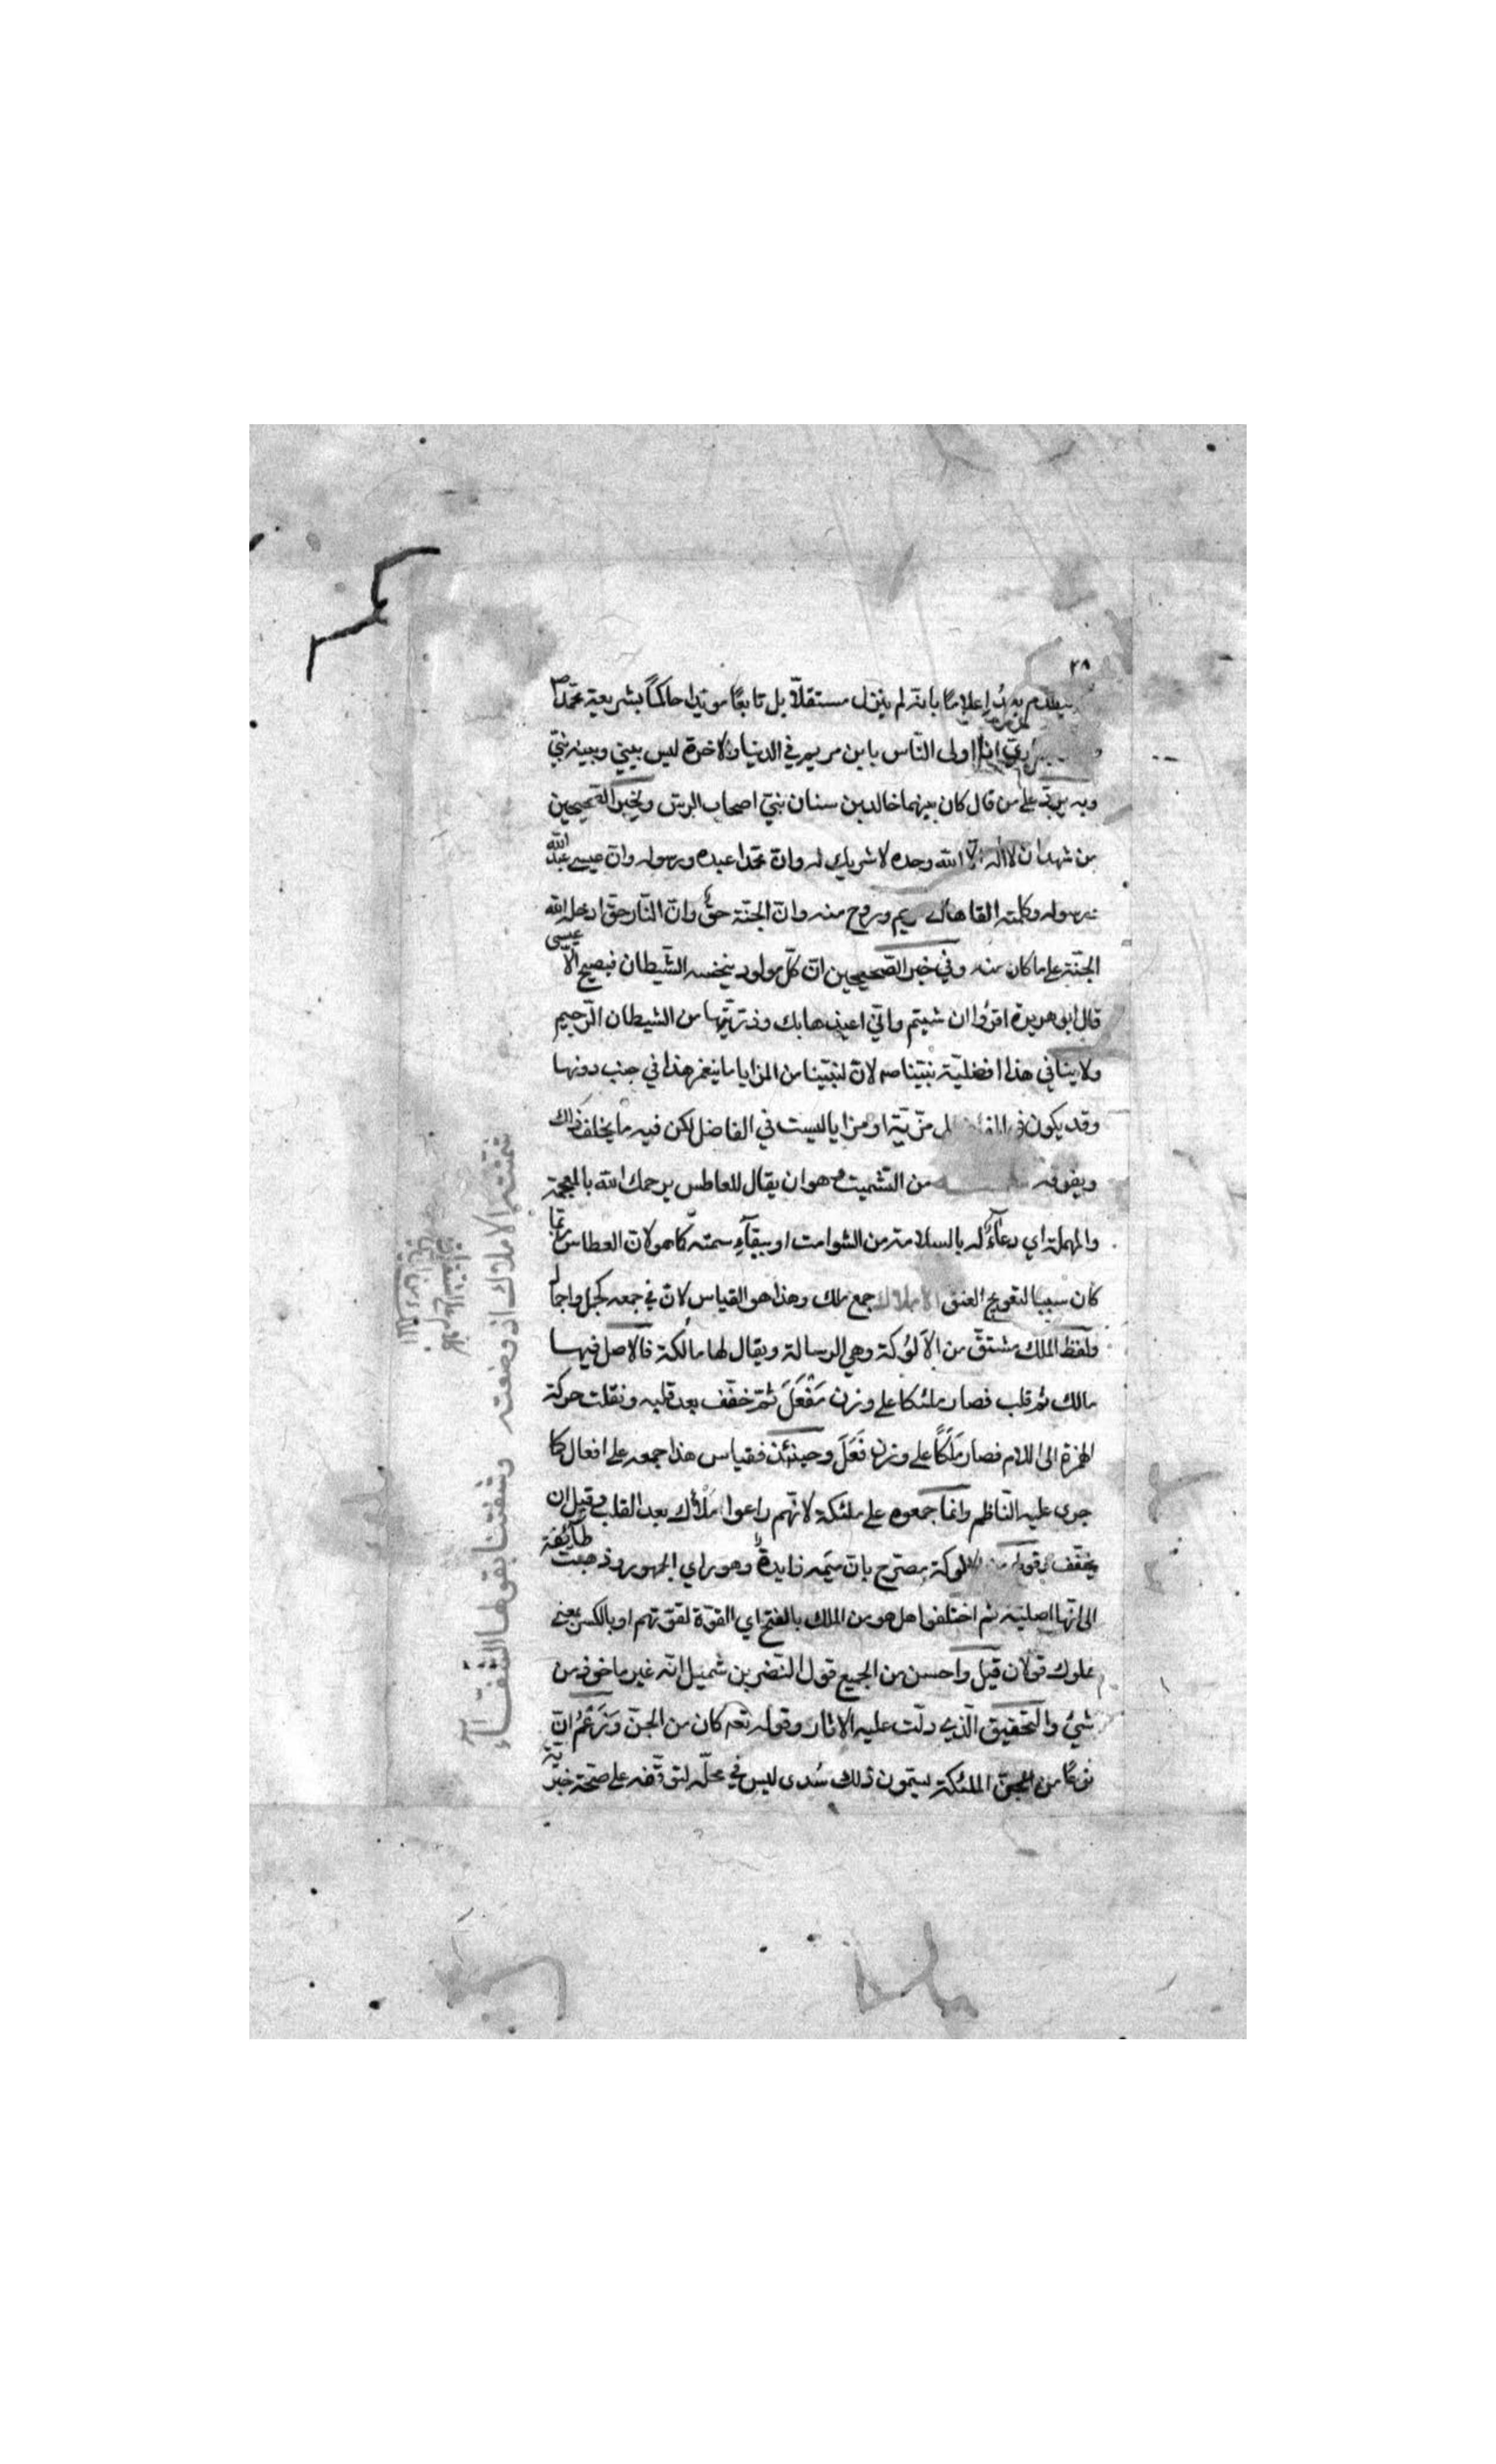 ٢٨
به إعلاما بانه لم ينزل مستقلّا بل تابعًا مويدا حاكمًا بشريعة محمّد ص
انا اولى النّاس بابن مريم في الدنيا والاخرة ليس بيني وبينه نبيّ
وبه يردّ على من قال كان بينهما خالد بن سنان نبيّ اصحاب الرسّ وخبر الصّحيحين
من شهد ان لا اله الّا الله وحده لا شريك له وانّ محمّدا عبده ورسوله وانّ عيسى عبد الله
ورسوله وكلمته القاها الى مريم وروح منه وانّ الجنّة حقّ وانّ النّار حقّ ادخله الله
الجنّة على ما كان منه وفي خبر الصّحيحين انّ كلّ مولود ينخسه الشّيطان فيصيح الّا عيسى
قال ابو هريرة اقرؤا ان شيتم وانّي اعيذها بك وذرّيتها من الشيطان الرّجيم
ولا ينافي هذا افضليّة نبيّنا صم لانّ لنبيّنا من المزايا ما ينغمر هذا في جنب دونها
وقد يكون في المفضول مزّيّة او مزايا ليست في الفاضل لكن فيه ما يخلف ذلك
ويفوقه من التّشميت وهو ان يقال للعاطس يرحمك الله بالمعجمة
والمهملة اي دعاءً له بالسلامة من الشوامت او ببقآء سمته كما هو لانّ العطاس ربما
كان سببا لتعويج العنق الاملاك جمع ملك وهذا هو القياس لانّ في جمعه كجبل واجبال
ولفظ الملك مشتقّ من الألوُكة وهي الرسالة ويقال لها مالكة فالاصل فيها
مالك ثم قلب فصار ملئكا على وزن مَفْعَلَ ثمّ خفّف بعد قلبه ونقلت حركة
الهمزة الى اللام فصار مَلَكًا على وزن فَعَلَ وحينئذ فقياس هذا جمعه على افعال كما
جرى عليه النّاظم وانّما جمعوه على ملئكة لانّهم راعوا مَلأك بعد القلب وقبل ان
يخفّف وقوله من الالوكة مصرّح بانّ ميمه زايدة وهو راي الجمهور وذهبت طآيفة
الى انّها اصليّة ثم اختلفوا هل هو من الملك بالفتح اي القوّة لقوّتهم او بالكسر بمعنى
مملوك قولان قيل واحسن من الجميع قول النّضر بن شميل انّه غير ماخوذ من
شيء والتّحقيق الّذي دلّت عليه الاثار وقوله تعه كان من الجنّ وزَعْمُ انّ
نوعًا من الجنّ الملئكة يسمّون ذلك سُدى ليس في محلّه لتوقّفه على صحّة خبر به
شمّتته الاملاك اذ وضعته وشفتنا بقولها الشّفّآء